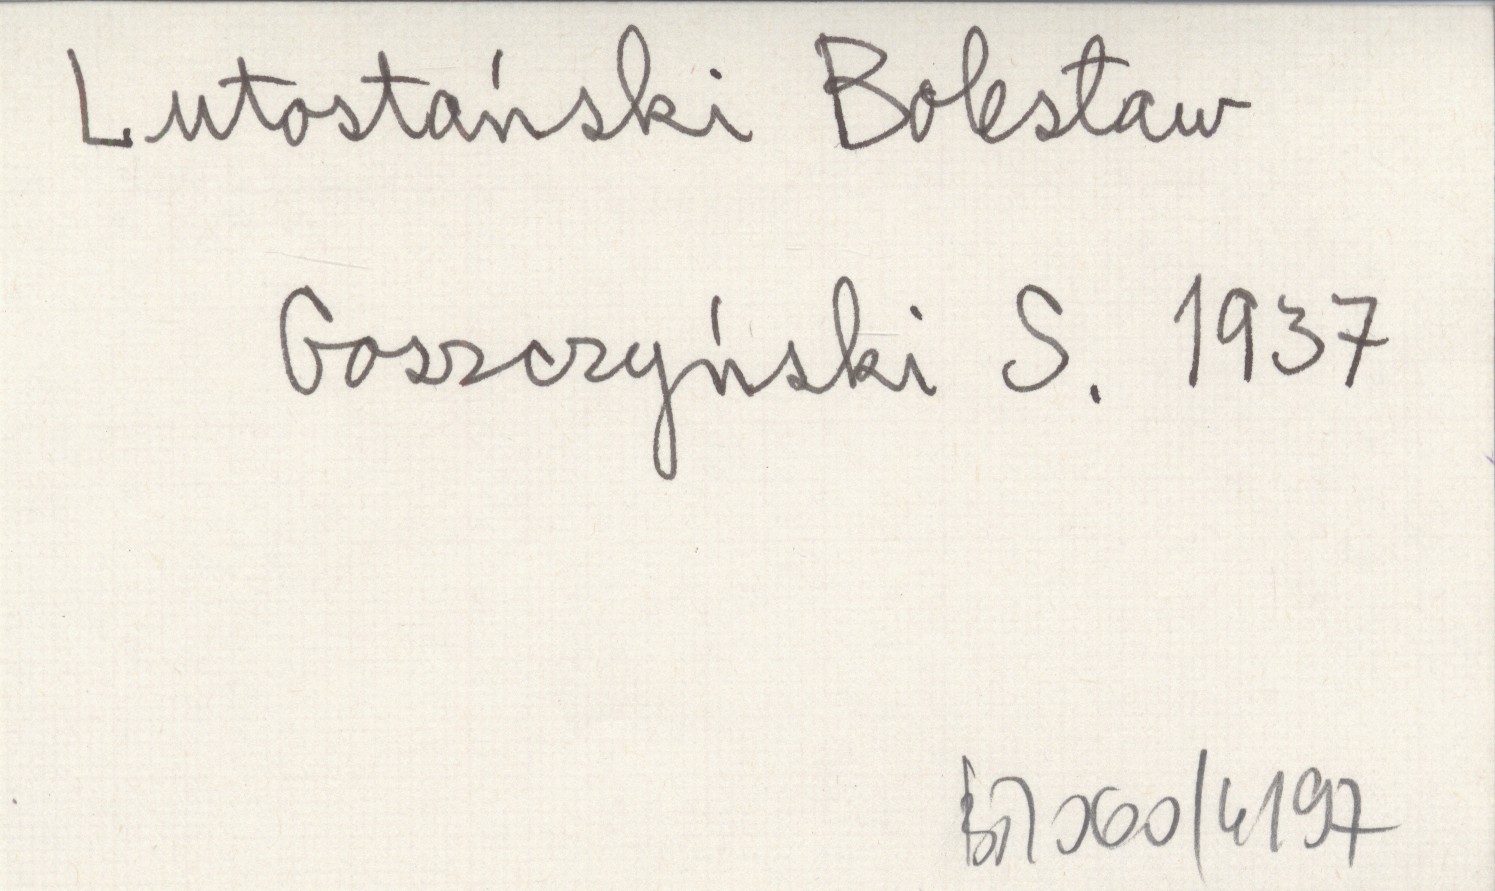 Lutostański Bolesław
Goszczyński S. 1937
/4197